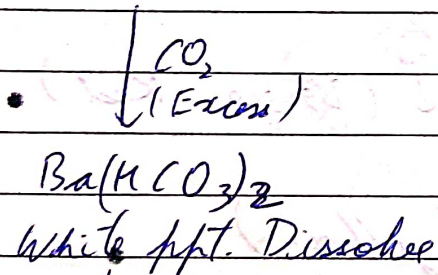 CO₂
(Excess)
Ba(HCO₃)₂
White ppt. Dissolve